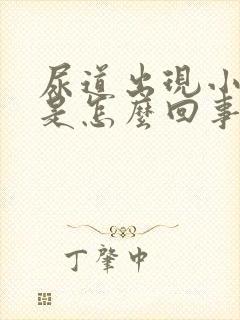 尿道出現小
是怎麼回事
丁肇中